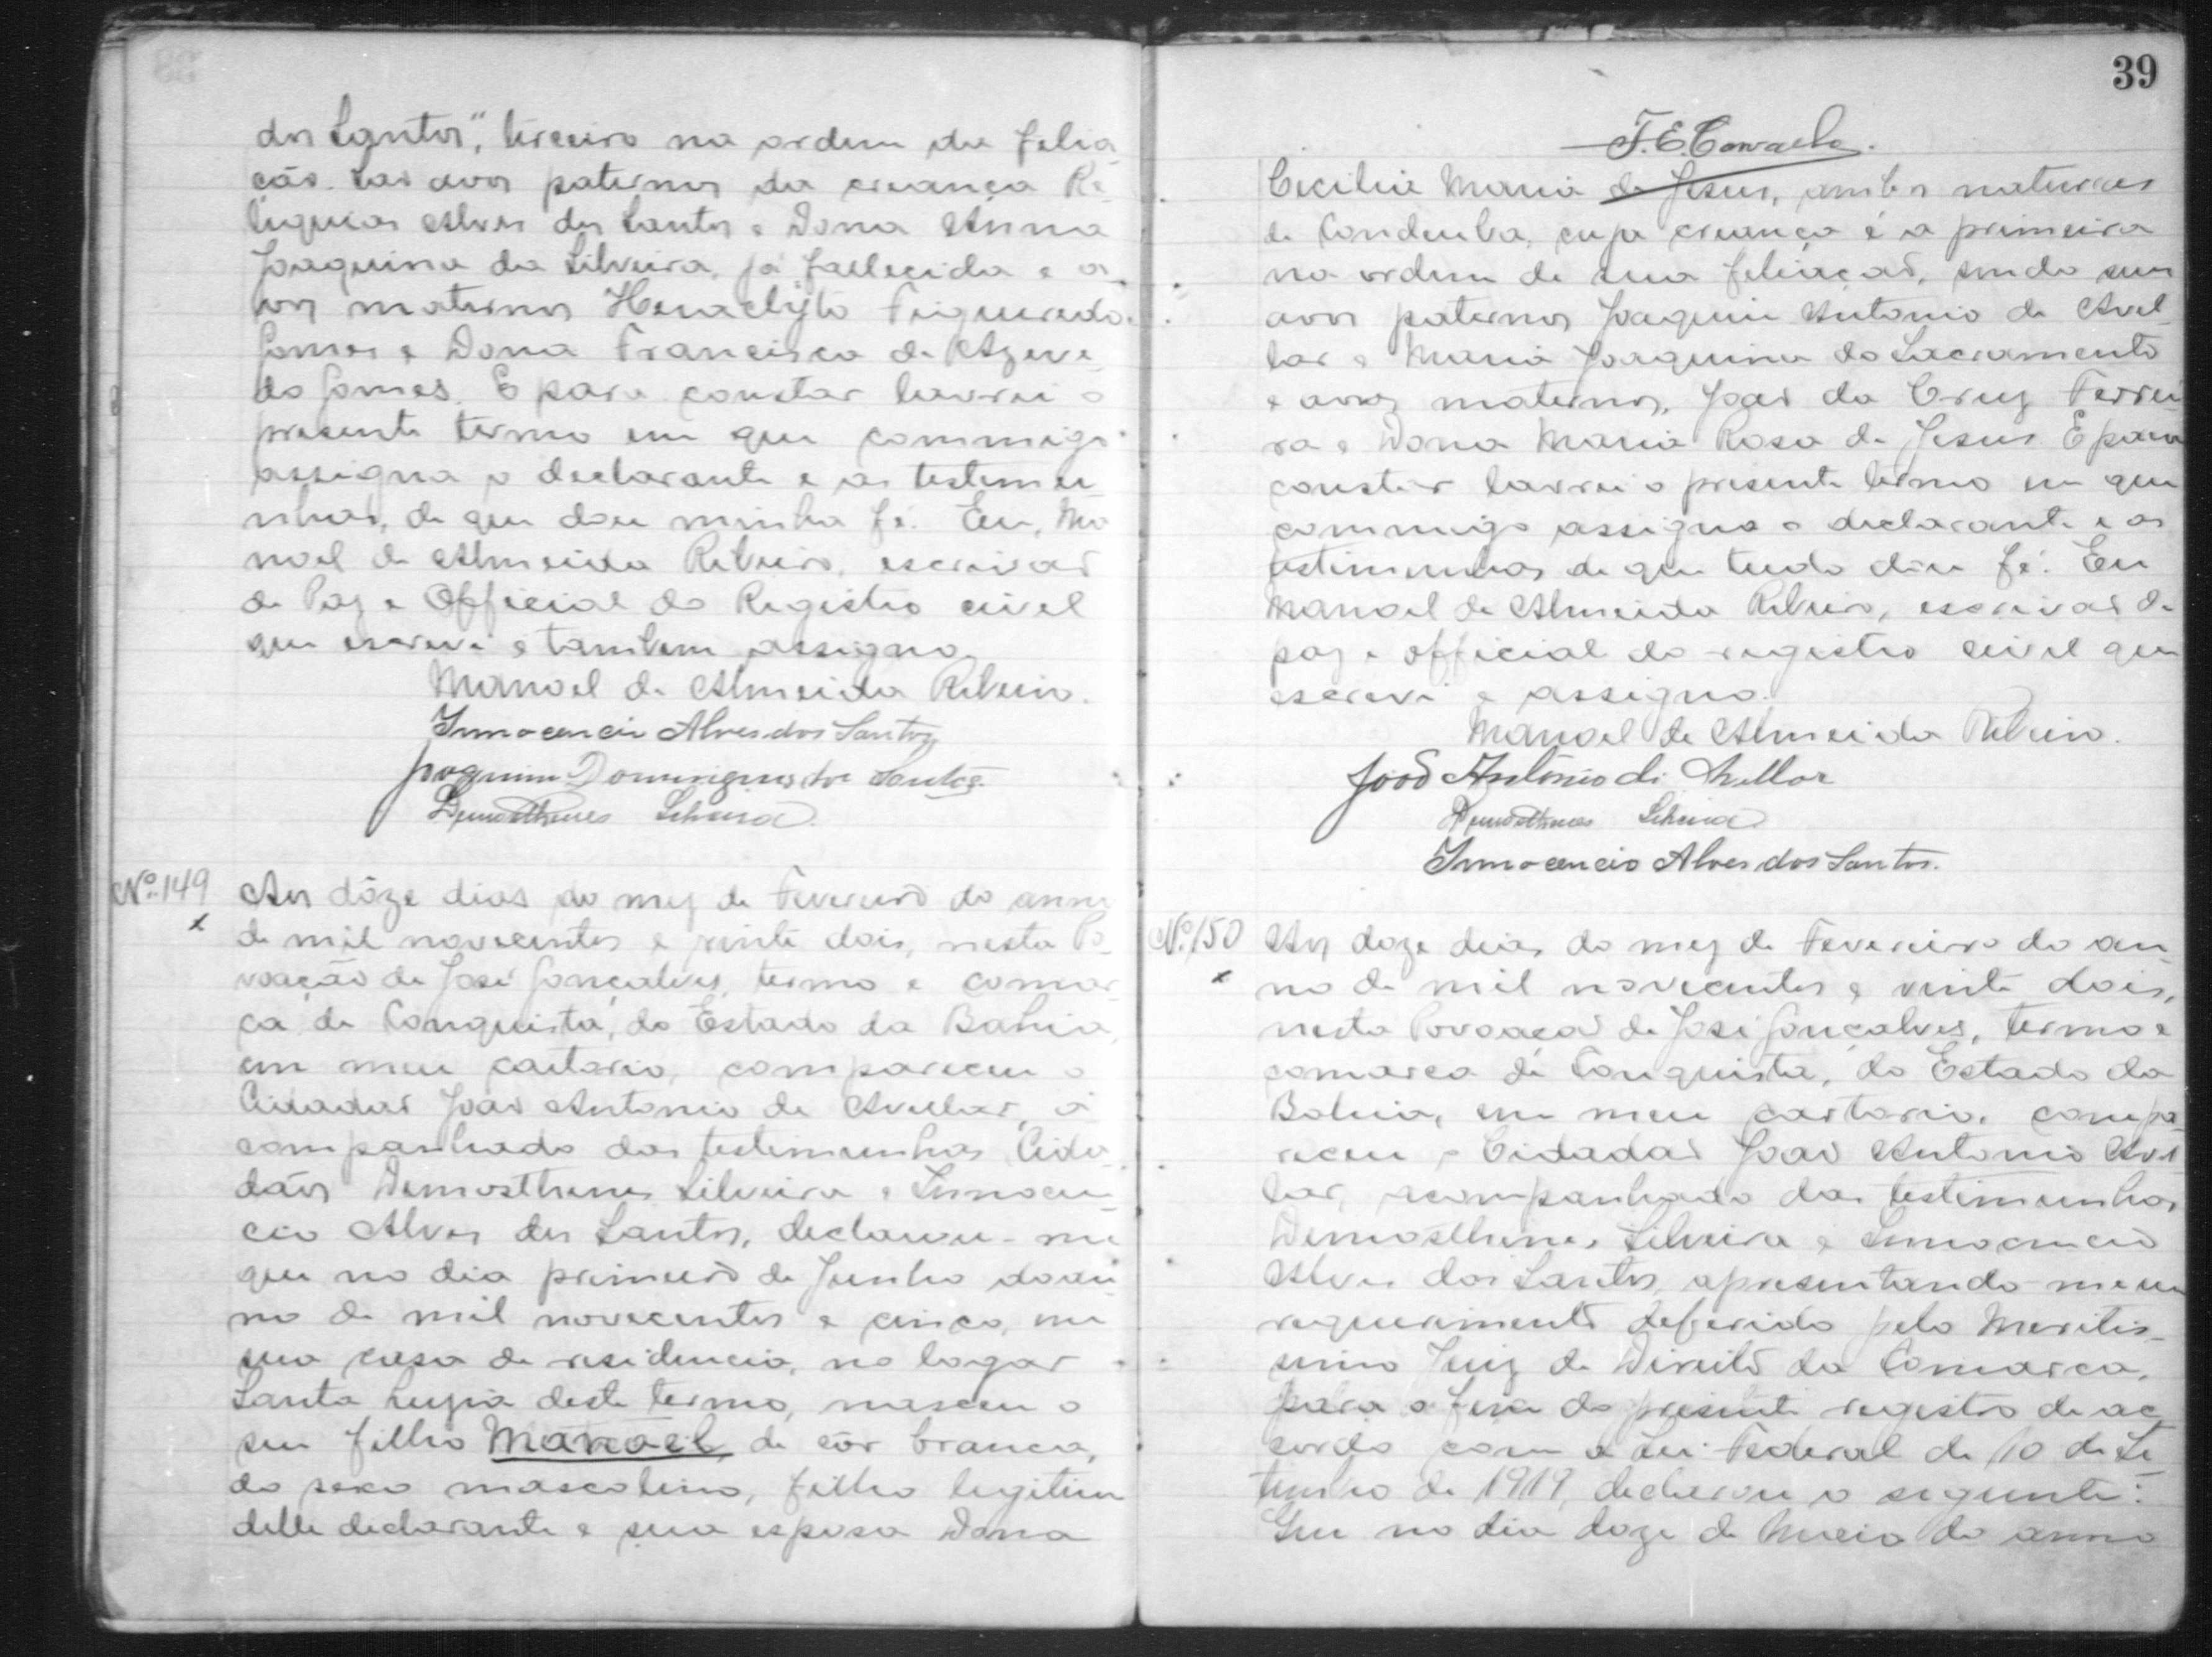 dos Santos", terceiro na ordem da filia
ção. São avos paternos da creança Re
liquias Alves dos Santos e Dona Anna
Joaquina da Silveira, já fallecida e a
vos maternos Heraclyto Figueredo
Gomes e Dona Francisca de Azeve
do Gomes. E para constar lavrei o
presente termo em que commigo
assigna o declarante e as testemu
nhas, de que dou minha fé. Eu, Ma
noel de Almeida Ribeiro, escrivão
de Paz e Official do Registro civel
que escrevi e tambem assigno.
Manoel de Almeida Ribeiro.
Innocencio Alves dos Santos
Joaquim Domingues dos Santos
Demosthenes Silveira
Nº 149
Aos dôze dias do mez de Fevereiro do anno
de mil novecentos e vinte dois, nesta Po
voação de José Gonçalves, termo e comar
ca de Conquista, do Estado da Bahia,
em meu cartorio, compareceu o
Cidadão João Antonio de Avellar, a
companhado das testemunhas Cida
dãos Demosthenes Silveira e Innocen
cio Alves dos Santos, declarou-me
que no dia primeiro de Junho do an
no de mil novecentos e cinco, em
sua casa de residencia, no logar
Santa Luzia deste termo, nasceu o
seu filho Manoel, de côr branca,
do sexo mascolino, filho legitimo
delle declarante e sua esposa Dona
39
F. E. Carvalho.
Cecilia Maria de Jesus, ambos naturaes
de Condeuba, cuja creança é a primeira
na ordem de sua filiação, sendo seus
avos paternos Joaquim Antonio de Avel
lar e Maria Joaquina do Sacramento
e avos maternos, João da Cruz Ferrei
ra e Dona Maria Rosa de Jesus E para
constar lavrei o presente termo em que
commigo assigna o declarante e as
testimunhas de que tudo dou fé. Eu
Manoel de Almeida Ribeiro, escrivão de
paz e official do registro civel que
escrevi e assigno.
Manoel de Almeida Ribeiro.
João Antonio di Avellar
Demosthenes Silveira
Innocencio Alves dos Santos.
Nº 150
Aos doze dias do mez de Fevereiro do an
no de mil novecentos e vinte dois,
nesta Povoação de José Gonçalves, termo e
comarca de Conquista, do Estado da
Bahia, em meu cartorio, compa
receu o Cidadão João Antonio Avel
lar, acompanhado das testimunhas
Demosthenes Silveira e Innocencio
Alves dos Santos, apresentando-me um
requerimento deferido pelo Meritis
simo Juiz de Direito da Comarca,
para o fim do presente registro de ac
cordo com a Lei Federal de 10 de Se
tembro de 1919, declarou o seguinte:
Que no dia doze de Maio do anno